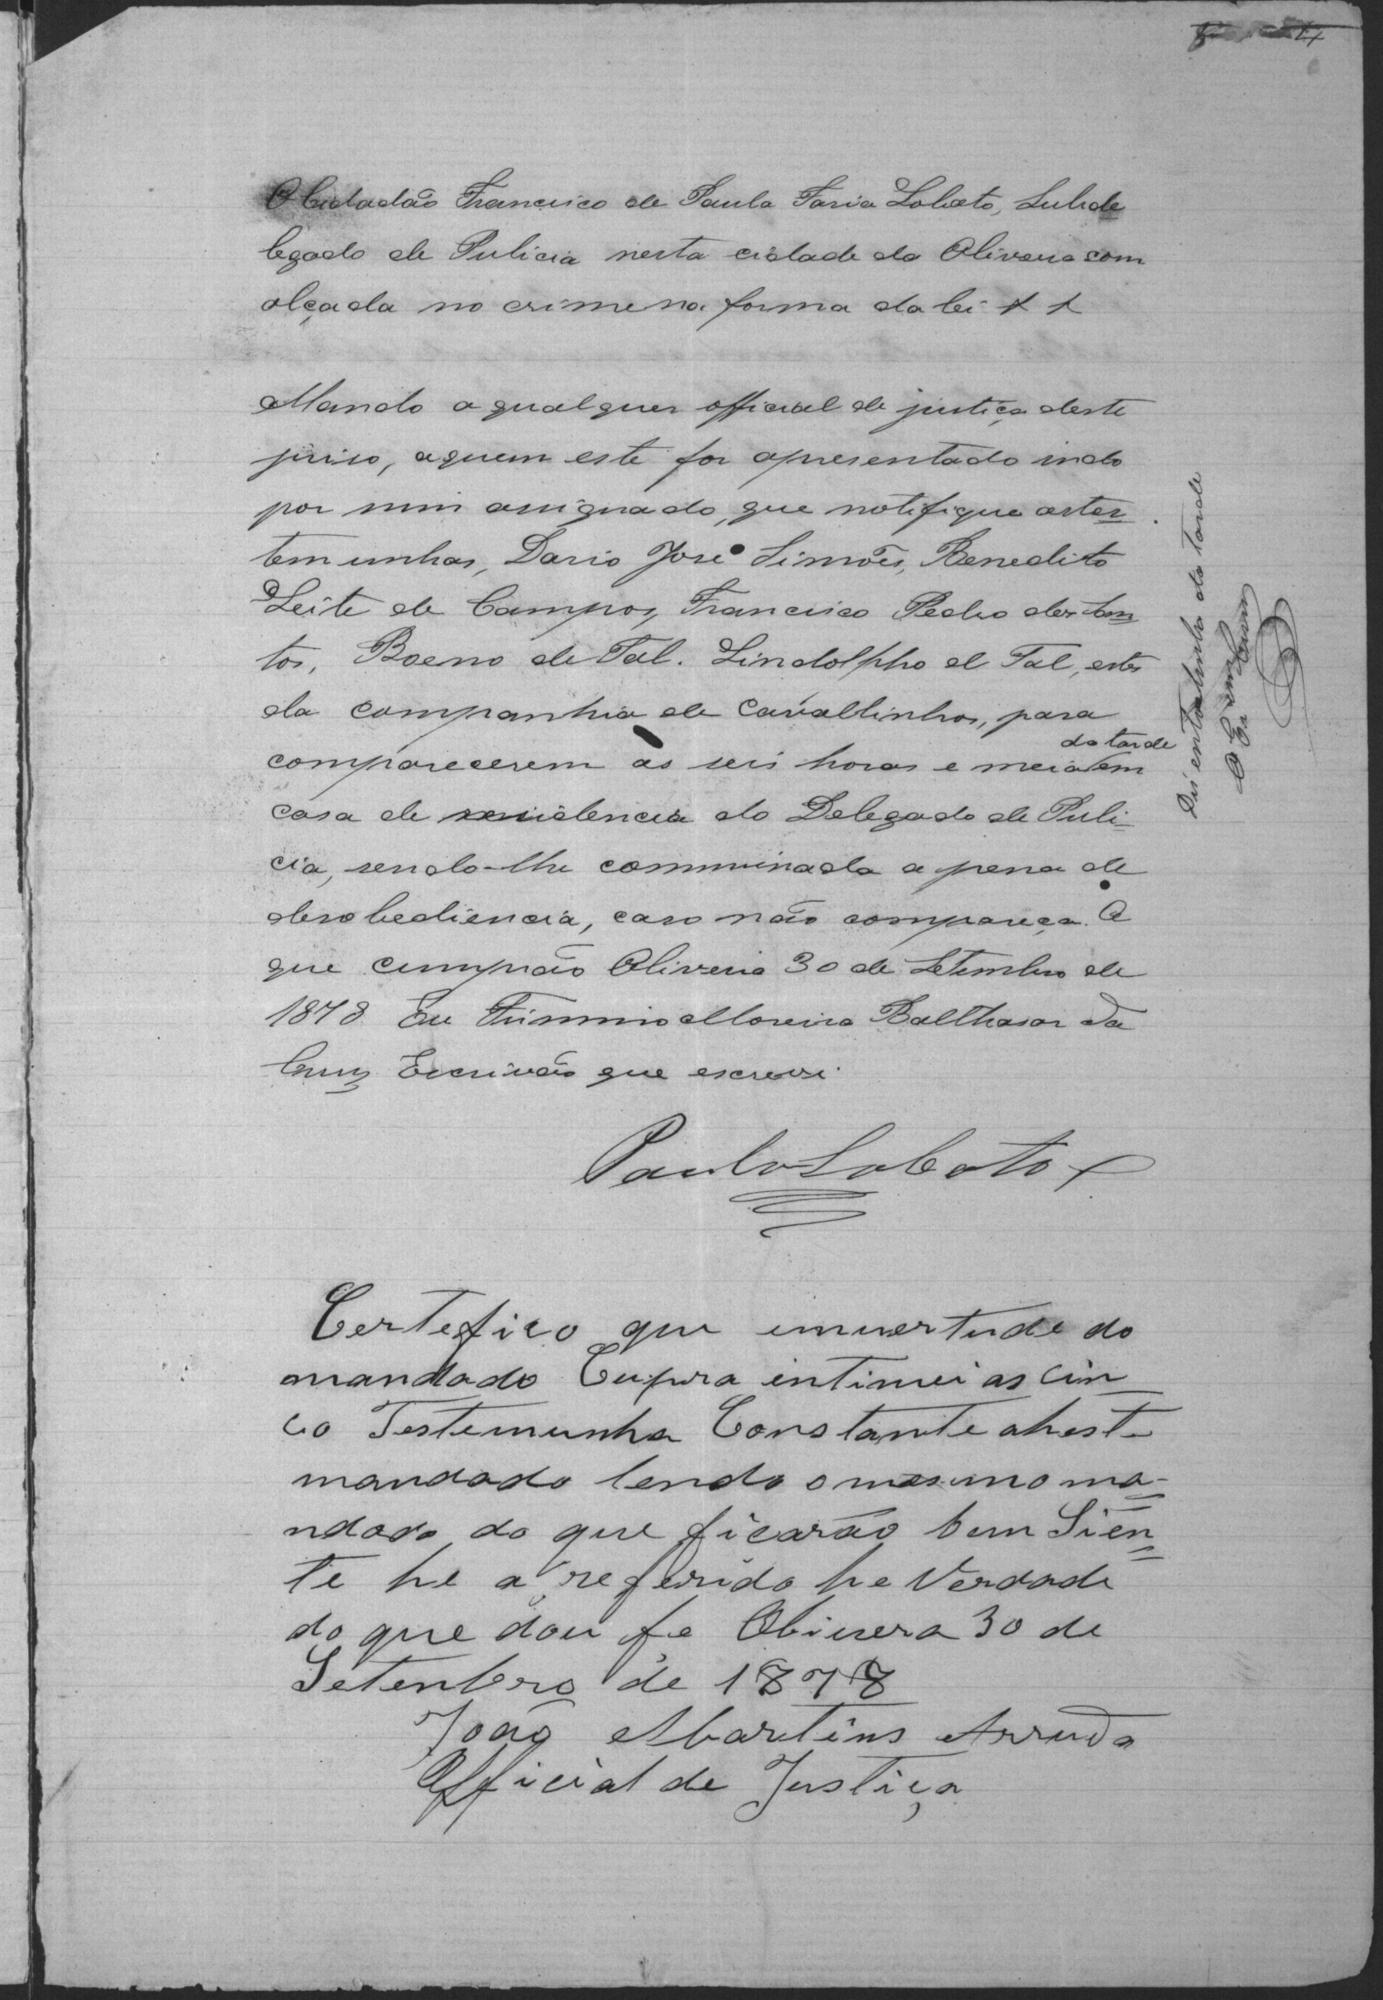 4
O Cidadão Francisco de Paula Faria Lobato, Subde
legado de Pulicia nesta cidade da Oliveira com
alçada no crime na forma da lei
Mando a qualquer official de justiça deste
juiso, a quem este for apresentado indo
por mim assignado, que notifique as tes
temunhas, Dario José Simões, Benedito
Leite de Campos, Francisco Pedro dos San
tos, Boeno de Tal. Lindolpho de Tal, estes
da companhia de Cavallinhos, para
comparecerem ás seis horas e meia da tarde em
casa de residencia do Delegado de Puli
cia, sendo-lhe comminada a pena de
desobediencia, caso não compareça. O
que cumprão Oliveira 30 de Setembro de
1878 Eu Firmino Moreira Balthasar da
Cruz Escrivão que escrevi
Paula Lobato
Certefico que em vertude do
mandado Cupra intimei as Cin
co Testemunha Constante a heste
mandado lendo o mesmo ma-
ndado do que ficarão bem Sien
te he a referido he Verdade
do que dou fe Olivera 30 de
Setenbro de 1878
João Martins Arruda
Official de Justiça
da tarde